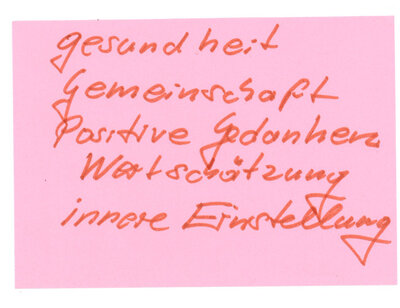 gesundheit
Gemeinschaft
Positive Gedanken
Wertschätzung
innere Einstellung